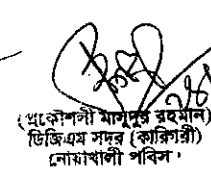 (প্রকৌশলী মাসুদুর রহমান)
ডিজিএম সদর (কারিগরী)
নোয়াখালী পবিস।